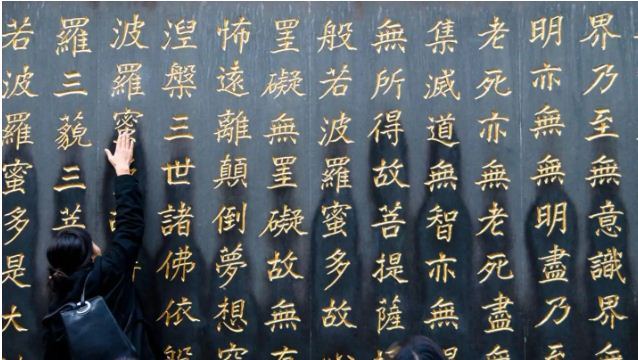 界乃至無意識界無
明亦無無明盡乃
老死亦無老死盡
集滅道無智亦無
無所得故菩提薩
般若波羅蜜多故
罣礙無罣礙故無有
怖遠離顛倒夢想究
涅槃三世諸佛依般
波羅蜜故
羅三藐三菩
若波羅蜜多是大